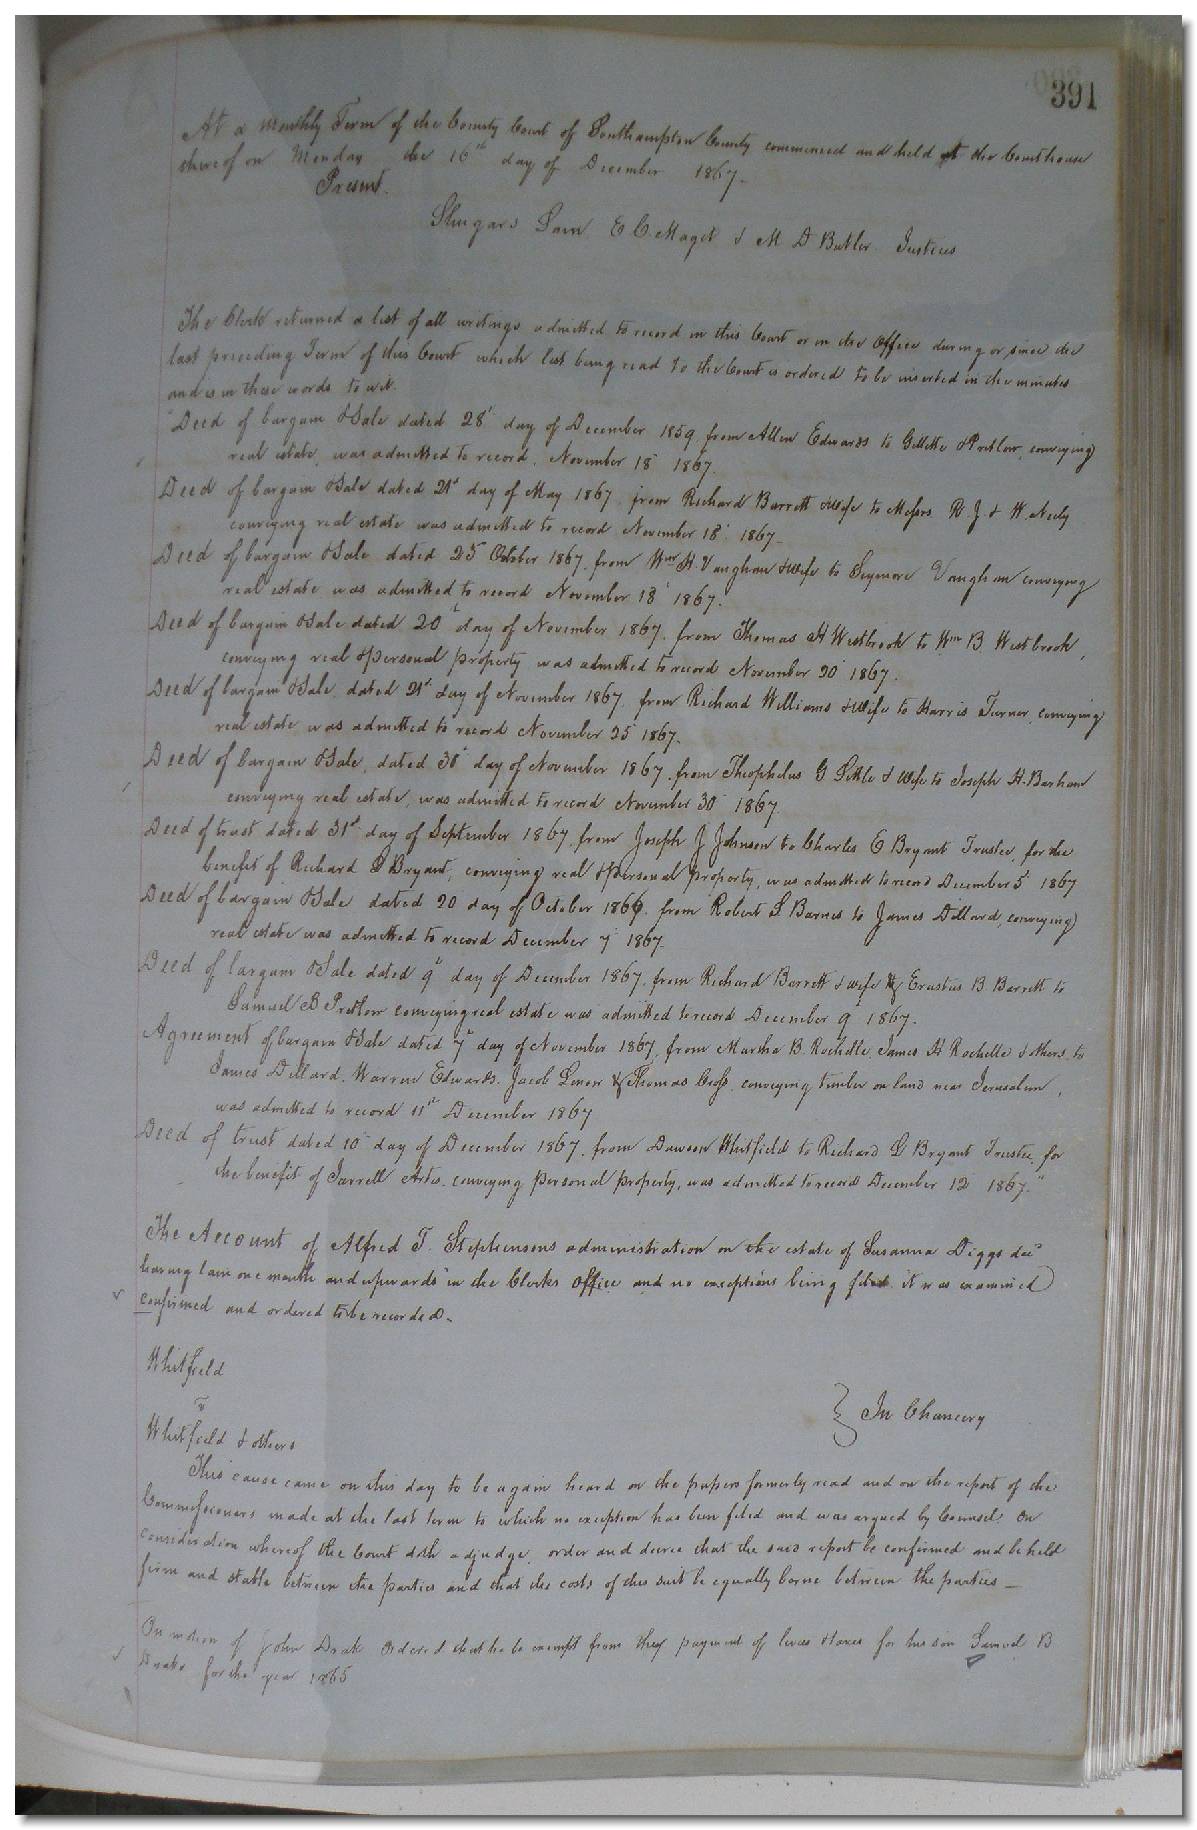 391
At a Monthly Term of the County Court of Southampton County commenced and held at the Courthouse
thereof on Monday the 16th day of December 1867.
Present.
Shugars Lain E C. Maget & M D Butler Justices
The Clerk returned a list of all writings admitted to record in this Court or in the Office during or since the
last preceding Term of this Court which list being read to the Court is ordered to be inserted in the minutes
and is in these words to wit.
"Deed of bargain & Sale dated 28th day of December 1859 from Allen Edwards to Gillette & Pretlow, conveying
real estate, was admitted to record. November 18 1867.
Deed of bargain & Sale dated 21st day of May 1867 from Richard Barrett & wife to Messrs R J & W Neely
conveying real estate was admitted to record November 18 1867.
Deed of bargain & Sale dated 25 October 1867, from Wm H. Vaughan & wife to Seymore Vaughan conveying
real estate was admitted to record November 18 1867.
Deed of bargain & Sale dated 20th day of November 1867 from Thomas H Westbrook to Wm B. Westbrook,
conveying real & personal property was admitted to record November 20 1867.
Deed of bargain & Sale, dated 21st day of November 1867 from Richard Williams & wife to Harris Turner, conveying
real estate was admitted to record November 25 1867.
Deed of bargain & Sale, dated 30th day of November 1867, from Theophelus G Little & wife to Joseph H. Barham
conveying real estate, was admitted to record November 30 1867.
Deed of trust dated 31st day of September 1867, from Joseph J Johnson to Charles E Bryant Trustee, for the
benefit of Richard D Bryant, conveying real & personal property, was admitted to record December 5 1867
Deed of bargain & Sale dated 20 day of October 1866. from Robert S. Barnes to James Dillard, conveying
real estate was admitted to record December 7 1867.
Deed of bargain & Sale dated 9th day of December 1867, from Richard Barrett & wife & Erastus B. Barrett to
Samuel B Pretlow conveying real estate was admitted to record December 9 1867.
Agreement of bargain & Sale dated 7th day of November 1867, from Martha B. Rochelle, James H Rochelle & others, to
James Dillard, Warren Edwards, Jacob & Thomas Goss. conveying timber on land near Jerusalem,
was admitted to record 11th December 1867
Deed of trust dated 10 day of December 1867, from Dawson Whitfield to Richard D Bryant Trustee, for
the benefit of Jarrell Artis. conveying personal property, was admitted to record December 12 1867."
The Account of Alfred T. Stephensons administration on the estate of Susanna Diggs decd
having lain one month and upwards in the Clerks office and no exceptions being filed it was examined
confirmed and ordered to be recorded.
Whitfield
vs
Whitfield & others
} In Chancery
This cause came on this day to be again heard on the papers formerly read and on the report of the
Commissioners made at the last term to which no exception has been filed and was argued by Counsel. On
consideration whereof the Court doth adjudge, order and decree that the said report be confirmed and be held
firm and stable between the parties and that the costs of this suit be equally borne between the parties —
On motion of John Drake ordered that he be exempt from the payment of levies & taxes for his son Samuel B
Drake for the year 1865